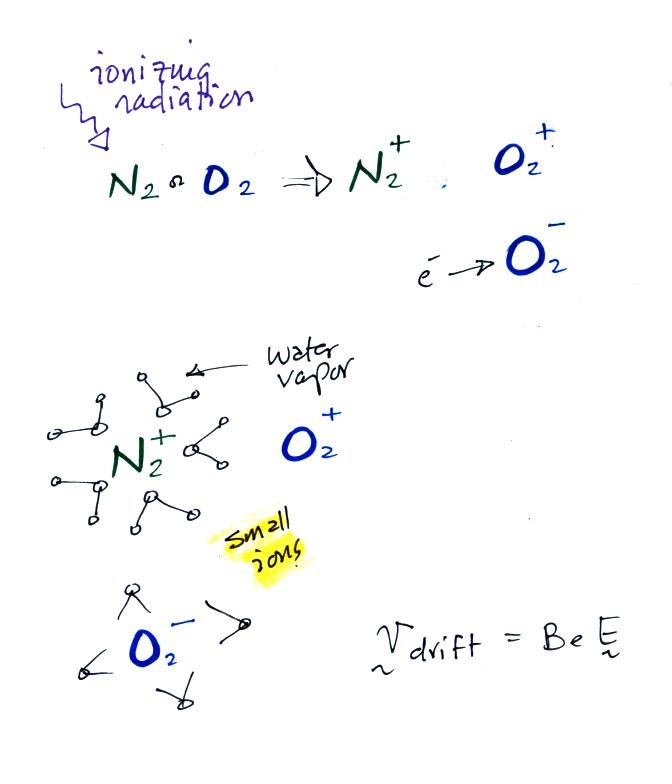 ionizing
radiation
N₂ or O₂ ⇒ N₂⁺ O₂⁺
e⁻ → O₂⁻
water
vapor
N₂⁺ O₂⁺
small
ions
O₂⁻
V drift = Be E